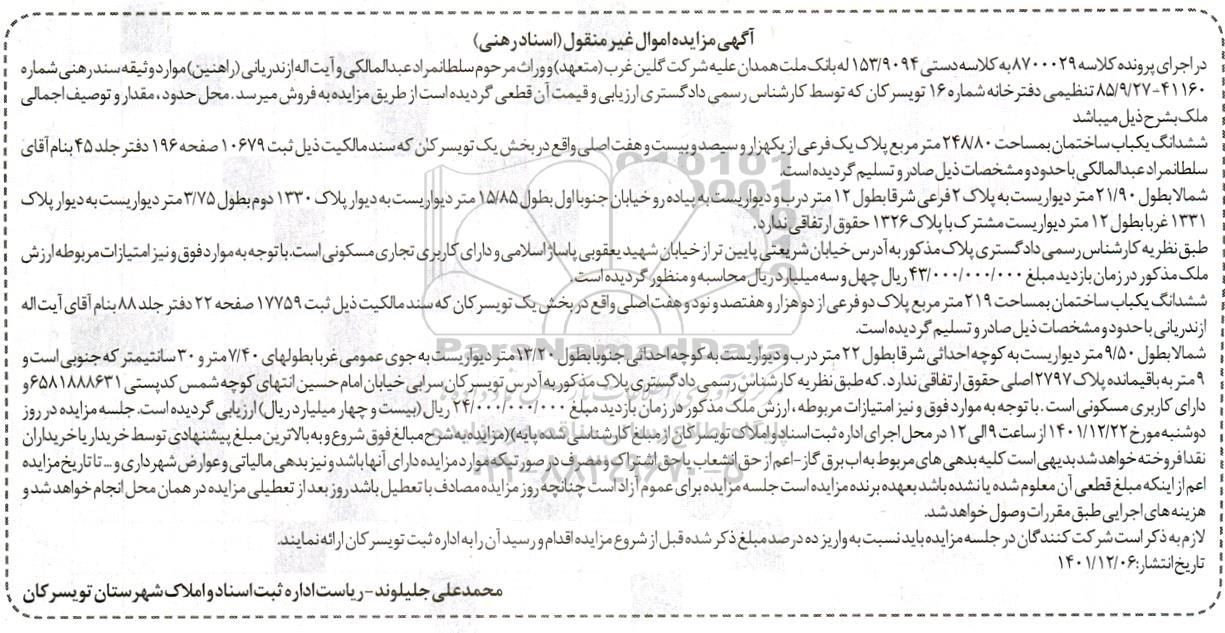 آگهی مزایده اموال غیر منقول (اسناد رهنی)
در اجرای پرونده کلاسه ۸۷۰۰۰۲۹ به کلاسه دستی ۱۵۳/۹۰۹۴ له بانک ملت همدان علیه شرکت گلین غرب (متعهد) و وراث مرحوم سلطانمراد عبدالمالکی و آیت اله ازندریانی (راهنین) موارد وثیقه سند رهنی شماره
۴۱۱۶۰-۸۵/۹/۲۷ تنظیمی دفترخانه شماره ۱۶ تویسرکان که توسط کارشناس رسمی دادگستری ارزیابی و قیمت آن قطعی گردیده است از طریق مزایده به فروش میرسد. محل حدود، مقدار و توصیف اجمالی
ملک بشرح ذیل میباشد
ششدانگ یکباب ساختمان بمساحت ۲۴۸/۸۰ متر مربع پلاک یک فرعی از یکهزار و سیصد و بیست و هفت اصلی واقع در بخش یک تویسرکان که سند مالکیت ذیل ثبت ۱۰۶۷۹ صفحه ۱۹۶ دفتر جلد ۴۵ بنام آقای
سلطانمراد عبدالمالکی با حدود و مشخصات ذیل صادر و تسلیم گردیده است.
شمالا بطول ۲۱/۹۰ متر دیواریست به پلاک ۲ فرعی شرقا بطول ۱۲ متر درب و دیواریست به پیاده رو خیابان جنوبا اول بطول ۱۵/۸۵ متر دیواریست به دیوار پلاک ۱۳۳۰ دوم بطول ۳/۷۵ متر دیواریست به دیوار پلاک
۱۳۳۱ غربا بطول ۱۲ متر دیواریست مشترک با پلاک ۱۳۲۶ حقوق ارتفاقی ندارد.
طبق نظریه کارشناس رسمی دادگستری پلاک مذکور به آدرس خیابان شریعتی پایین تر از خیابان شهید یعقوبی پاساژ اسلامی و دارای کاربری تجاری مسکونی است. با توجه به موارد فوق و نیز امتیازات مربوطه ارزش
ملک مذکور در زمان بازدید مبلغ ۴۳/۰۰۰/۰۰۰/۰۰۰ ریال چهل و سه میلیارد ریال محاسبه و منظور گردیده است.
ششدانگ یکباب ساختمان بمساحت ۲۱۹ متر مربع پلاک دو فرعی از دو هزار و هفتصد و نود و هفت اصلی واقع در بخش یک تویسرکان که سند مالکیت ذیل ثبت ۱۷۷۵۹ صفحه ۲۲ دفتر جلد ۸۸ بنام آقای آیت اله
ازندریانی با حدود و مشخصات ذیل صادر و تسلیم گردیده است.
شمالا بطول ۹/۵۰ متر دیواریست به کوچه احداثی شرقا بطول ۲۲ متر درب و دیواریست به کوچه احداثی جنوبا بطول ۱۳/۲۰ متر دیواریست به جوی عمومی غربا بطولهای ۷/۴۰ متر و ۳۰ سانتیمتر که جنوبی است و
۹ متر به باقیمانده پلاک ۲۷۹۷ اصلی حقوق ارتفاقی ندارد. که طبق نظریه کارشناس رسمی دادگستری پلاک مذکور به آدرس تویسرکان سرابی خیابان امام حسین انتهای کوچه شمس کدپستی ۶۵۸۱۸۸۸۶۳۱ و
دارای کاربری مسکونی است. با توجه به موارد فوق و نیز امتیازات مربوطه، ارزش ملک مذکور در زمان بازدید مبلغ ۲۴/۰۰۰/۰۰۰/۰۰۰ ریال (بیست و چهار میلیارد ریال) ارزیابی گردیده است. جلسه مزایده در روز
دوشنبه مورخ ۱۴۰۱/۱۲/۲۲ از ساعت ۹ الی ۱۲ در محل اجرای اداره ثبت اسناد و املاک تویسرکان از مبلغ کارشناسی شده پایه) (مزایده به شرح مبالغ فوق شروع و به بالاترین مبلغ پیشنهادی توسط خریدار یا خریداران
نقدا فروخته خواهد شد بدیهی است کلیه بدهی های مربوط به اب برق گاز-اعم از حق انشعاب یا حق اشتراک و مصرف در صورتیکه موارد مزایده دارای آنها باشد و نیز بدهی مالیاتی و عوارض شهرداری و ... تا تاریخ مزایده
اعم از اینکه مبلغ قطعی آن معلوم شده یا نشده باشد بعهده برنده مزایده است جلسه مزایده برای عموم آزاد است چنانچه روز مزایده مصادف با تعطیل باشد روز بعد از تعطیلی مزایده در همان محل انجام خواهد شد و
هزینه های اجرایی طبق مقررات وصول خواهد شد.
لازم به ذکر است شرکت کنندگان در جلسه مزایده باید نسبت به واریز ده درصد مبلغ ذکر شده قبل از شروع مزایده اقدام و رسید آن را به اداره ثبت تویسرکان ارائه نمایند.
تاریخ انتشار: ۱۴۰۱/۱۲/۰۶
محمدعلی جلیلوند - ریاست اداره ثبت اسناد و املاک شهرستان تویسرکان
ParsNamadData
۰۲۱-۸۸۳۴۹۶۷۰-۵